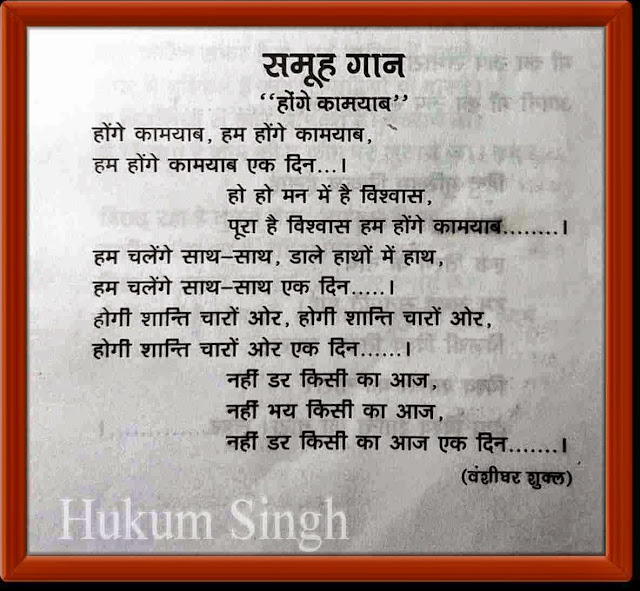 समूह गान
“होंगे कामयाब”
होंगे कामयाब, हम होंगे कामयाब,
हम होंगे कामयाब एक दिन...।
हो हो मन में है विश्वास,
पूरा है विश्वास हम होंगे कामयाब........।
हम चलेंगे साथ-साथ, डाले हाथों में हाथ,
हम चलेंगे साथ-साथ एक दिन.....।
होगी शान्ति चारों ओर, होगी शान्ति चारों ओर,
होगी शान्ति चारों ओर एक दिन......।
नहीं डर किसी का आज,
नहीं भय किसी का आज,
नहीं डर किसी का आज एक दिन.......।
(वंशीधर शुक्ल)
Hukum Singh